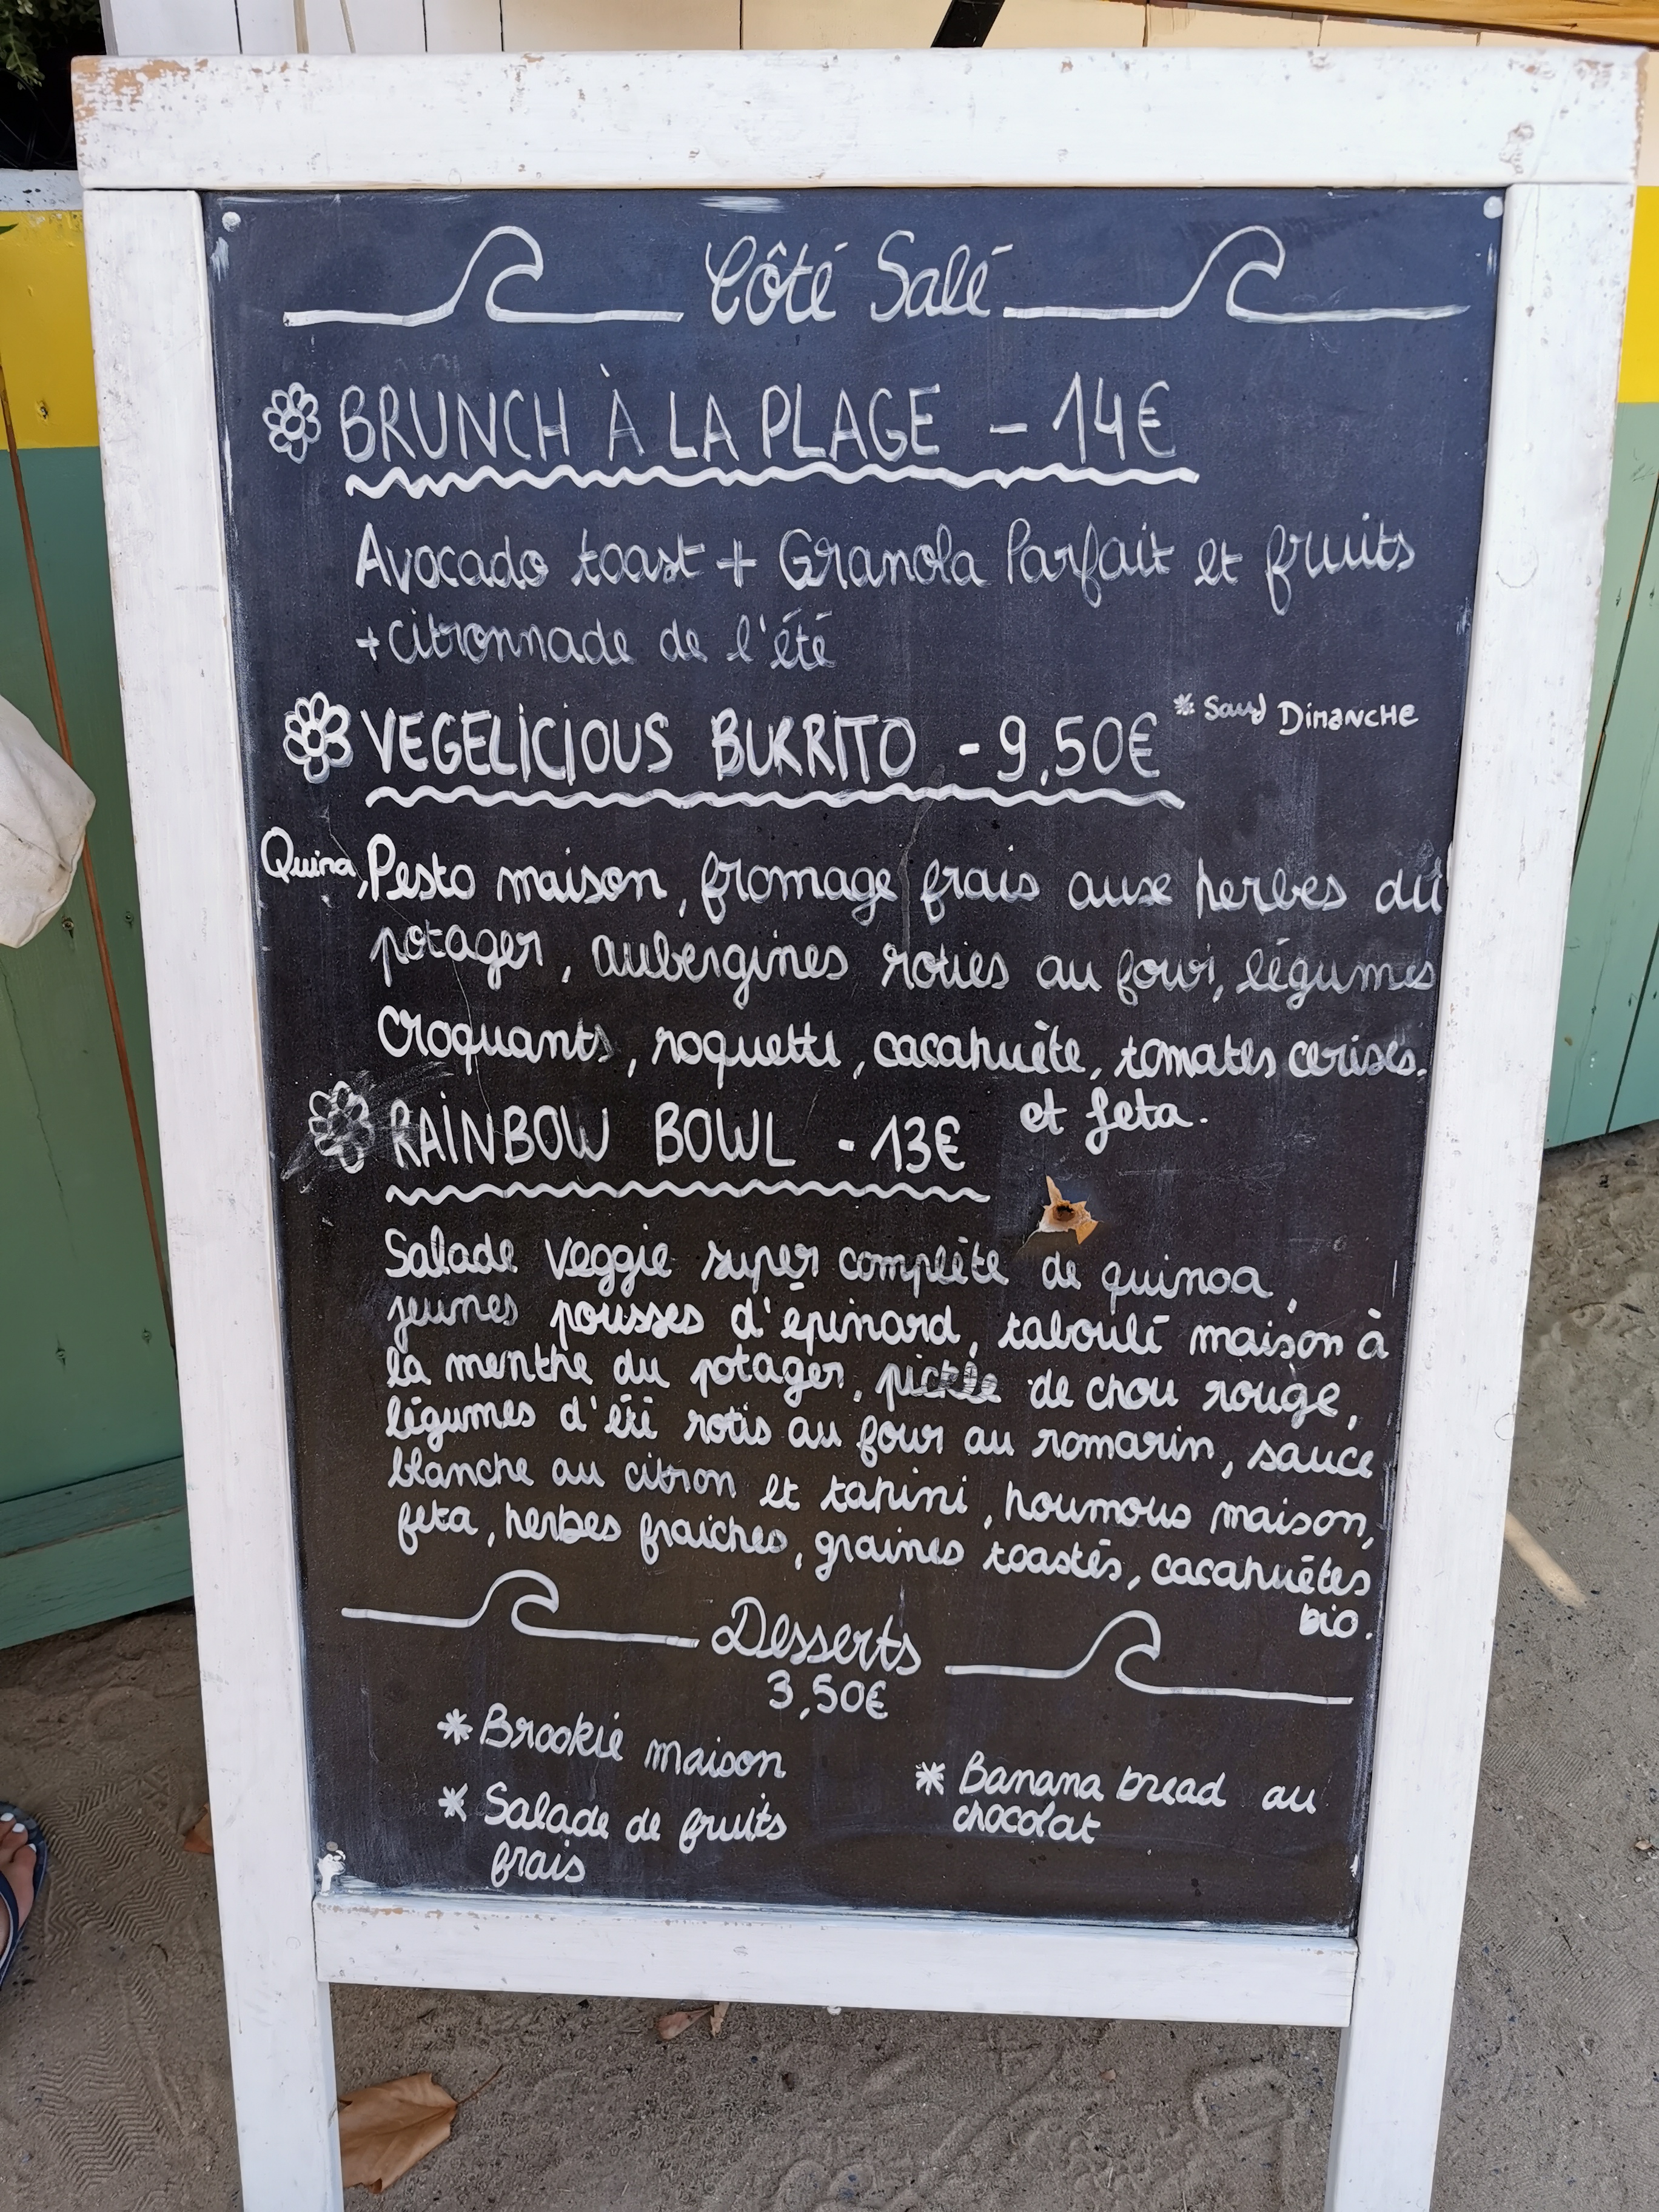 Côté Salé
BRUNCH À LA PLAGE - 14€
Avocado toast + Granola Parfait et fruits
+ citronnade de l'été
VEGELICIOUS BURRITO - 9,50€ * Sauf DIMANCHE
Quina, Pesto maison, fromage frais aux herbes du
potager, aubergines roties au four, légumes
croquants, roquette, cacahuète, tomates cerises.
et feta.
RAINBOW BOWL - 13€
Salade veggie super complète de quinoa,
jeunes pousses d'épinard, taboulé maison à
la menthe du potager, pickle de chou rouge,
légumes d'été rotis au four au romarin, sauce
blanche au citron et tahini, houmous maison,
feta, herbes fraiches, graines toastés, cacahuètes
bio.
Desserts
3,50€
* Brookie maison
* Salade de fruits
frais
* Banana bread au
chocolat